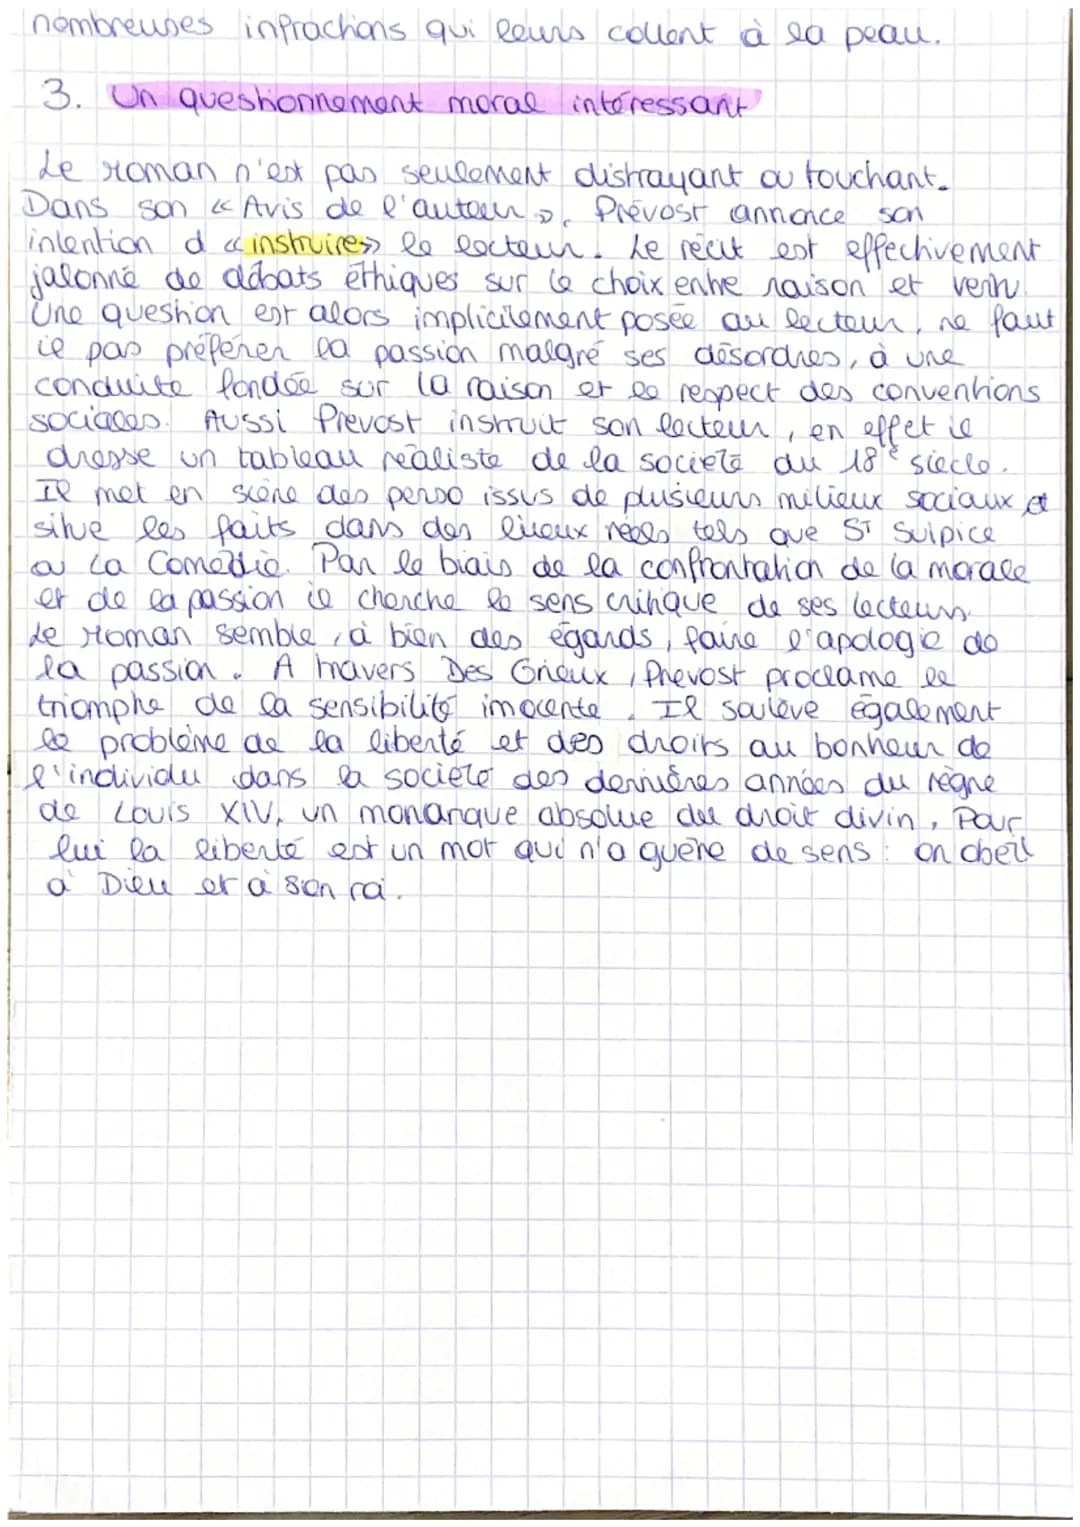 nombreuses infractions qui leurs collent à la peau.
3. Un questionnement moral intéressant
Le roman n'est pas seulement distrayant ou touchant.
Dans son « Avis de l'auteur », Prévost annonce son
intention d « instruire » le lecteur. Le récit est effectivement
jalonné de débats éthiques sur le choix entre raison et vertu.
Une question est alors implicitement posée au lecteur, ne faut
il pas préférer la passion malgré ses désordres, à une
conduite fondée sur la raison et le respect des conventions
sociales. Aussi Prevost instruit son lecteur, en effet il
dresse un tableau réaliste de la société du 18e siècle.
Il met en scène des perso issus de plusieurs milieux sociaux et
situe les faits dans des lieux réels tels que ST Sulpice
ou La Comédie. Par le biais de la confrontation de la morale
et de la passion il cherche le sens critique de ses lecteurs.
Le roman semble, à bien des égards, faire l'apologie de
la passion. A travers Des Grieux, Prevost proclame le
triomphe de la sensibilité innocente. Il soulève également
le problème de la liberté et des droits au bonheur de
l'individu dans la société des dernières années du règne
de Louis XIV, un monarque absolue du droit divin, Pour
lui la liberté est un mot qui n'a guère de sens : on obéit
à Dieu et à son roi.